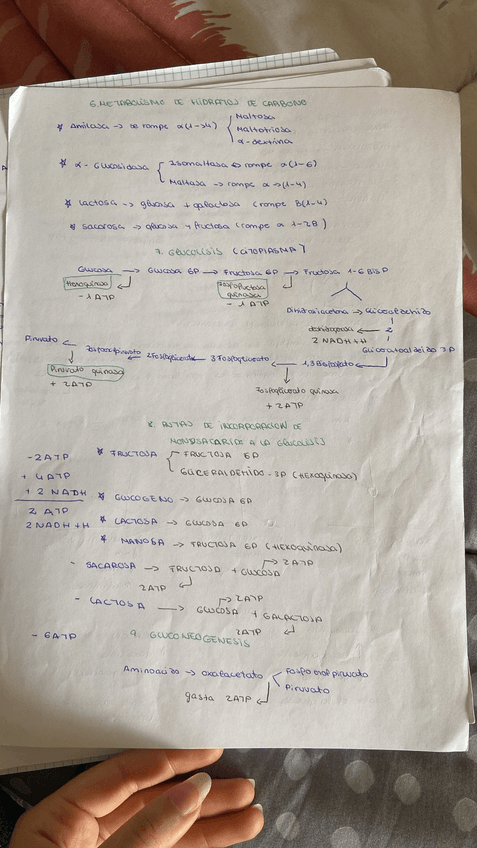 6. METABOLISMO DE HIDRATOS DE CARBONO
* Amilasa → rompe α(1→4) { Maltosa
Maltotriosa
α-dextrina
* α-Glucosidasa { Isomaltasa → rompe α(1-6)
Maltasa → rompe α→(1-4)
* Lactosa → glucosa + galactosa (rompe B(1-4)
* Sacarosa → glucosa + fructosa (rompe α 1-2B)
7. GLUCOLISIS (CITOPLASMA)
Glucosa → Glucosa 6P → Fructosa 6P → Fructosa 1-6 Bis P
Hexoquinasa
- 1 ATP
Fosfofructosa
quinasa
- 1 ATP
Dihidroxiacetona → Gliceraldehido
2
2 NADH+H
Gliceraldeido 3P
Piruvato ← Fosfoenolpiruvato ← 2Fosfoglicerato ← 3 Fosfoglicerato ← 1,3 Bisfosfato
Piruvato quinasa
+ 2 ATP
Fosfoglicerato quinasa
+ 2 ATP
8. RUTAS DE INCORPORACION DE
MONOSACARIDO A LA GLUCOLISIS
- 2 ATP
+ 4 ATP
+ 2 NADH
2 ATP
2 NADH+H
* FRUCTOSA { FRUCTOSA 6P
GLICERALDEHIDO-3P (HEXOQUINASA)
* GLUCOGENO → GLUCOSA 6P
* LACTOSA → GLUCOSA 6P
* MANOSA → FRUCTOSA 6P (HEXOQUINASA)
- SACAROSA → FRUCTOSA + GLUCOSA → 2 ATP
2 ATP
- LACTOSA → GLUCOSA + GALACTOSA
2 ATP
2 ATP
- 6 ATP
9. GLUCONEOGENESIS
Aminoacido → oxalacetato
Fosfoenolpiruvato
Piruvato
gasta 2 ATP